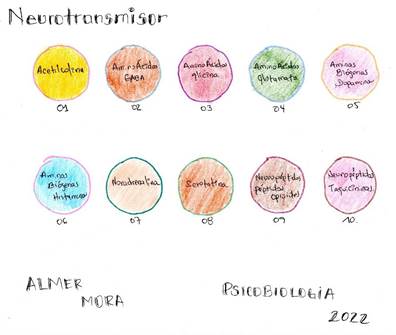 Neurotransmisor
Acetilcolina
01
AminoÁcidos
GABA
02
AminoÁcidos
glicina
03
AminoÁcidos
glutamato
04
Aminas
Biógenas
Dopamina
05
Aminas
Biógenas
Histamina
06
Noradrenalina
07
Serotonina
08
Neuropéptidos
péptidos
opioides
09
Neuropéptidos
Taquicininas
10.
ALMER
MORA
PSICOBIOLOGIA
2022